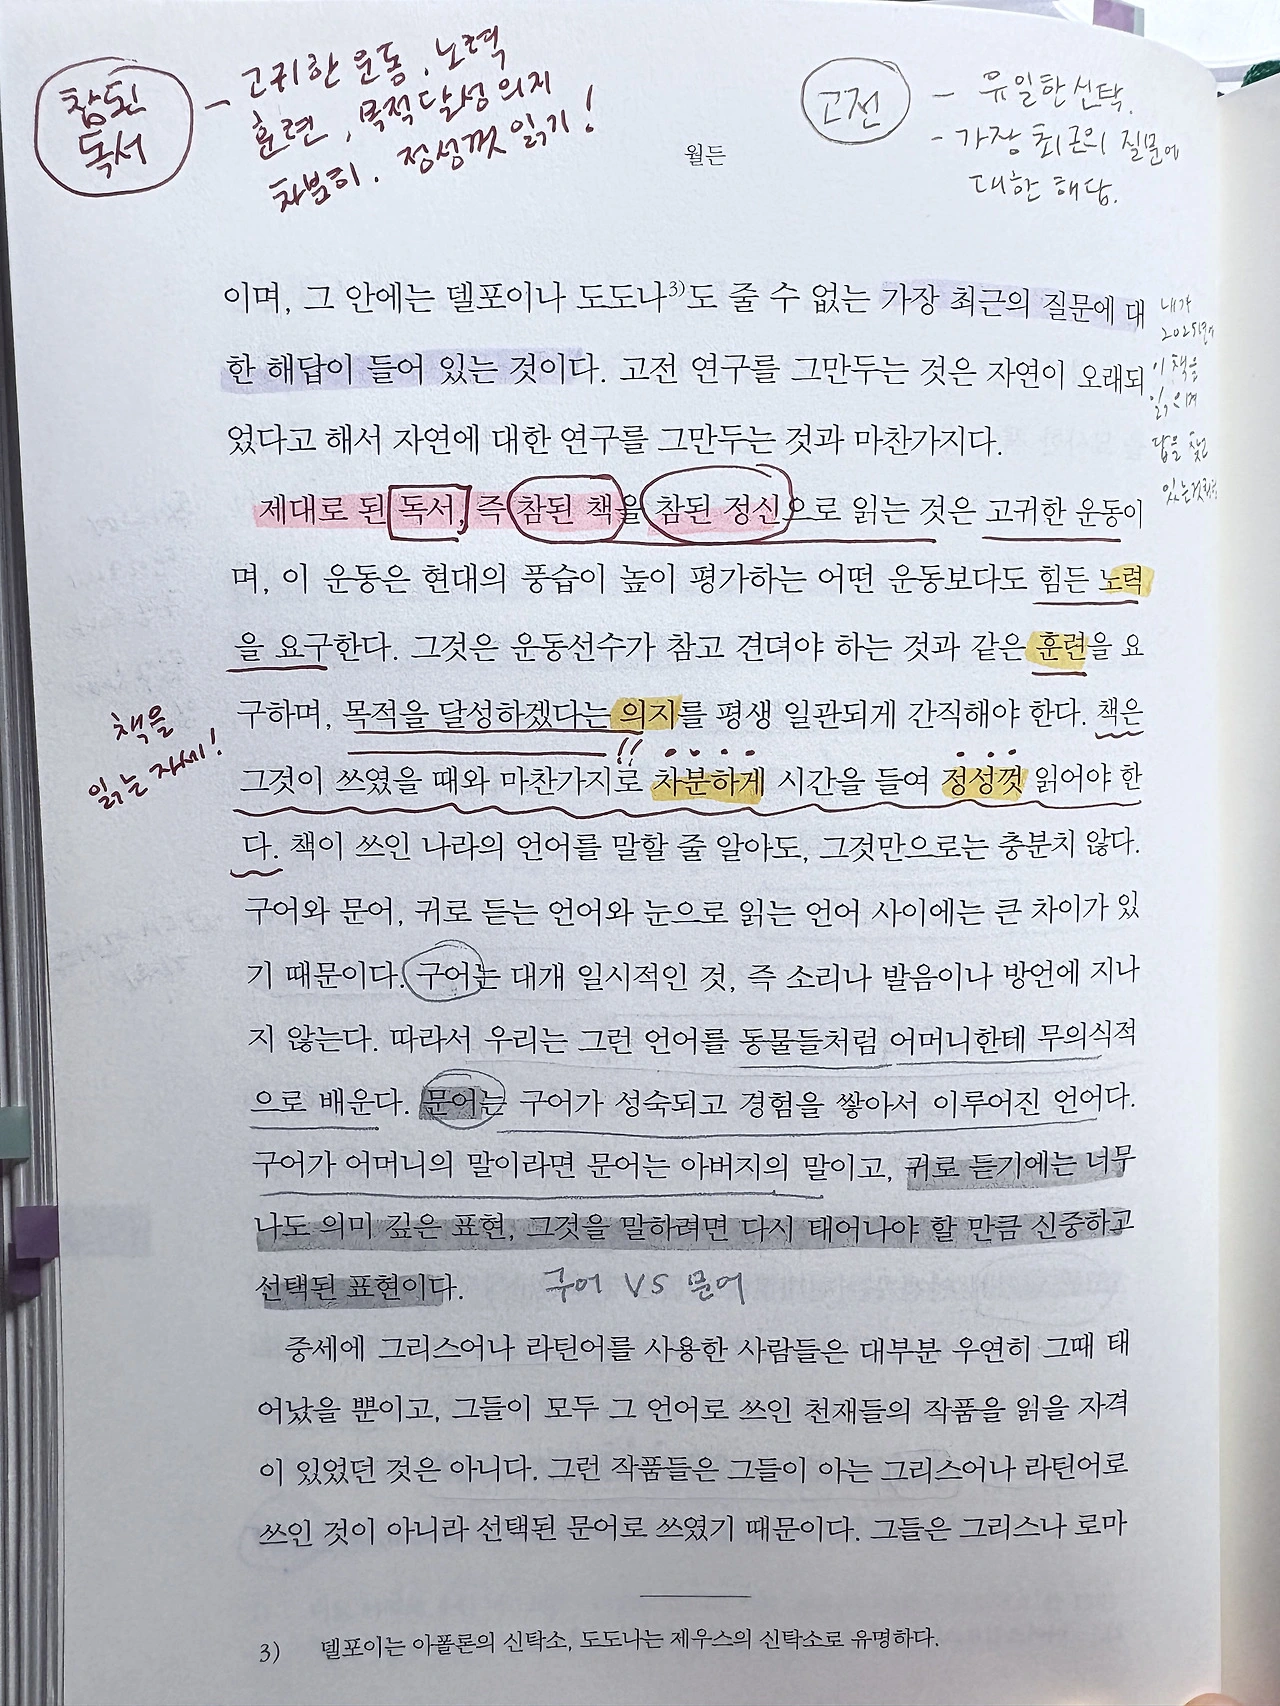 참된
독서
- 고귀한 운동, 노력
훈련, 목적달성의지
차분히, 정성껏 읽기!
고전
- 유일한 신탁.
- 가장 최근의 질문에
대한 해답.
월든
이며, 그 안에는 델포이나 도도나3)도 줄 수 없는 가장 최근의 질문에 대
한 해답이 들어 있는 것이다. 고전 연구를 그만두는 것은 자연이 오래되
었다고 해서 자연에 대한 연구를 그만두는 것과 마찬가지다.
내가
2025년에
이 책을
읽으며
답을 찾고
제대로 된 독서, 즉 참된 책을 참된 정신으로 읽는 것은 고귀한 운동이
며, 이 운동은 현대의 풍습이 높이 평가하는 어떤 운동보다도 힘든 노력
을 요구한다. 그것은 운동선수가 참고 견뎌야 하는 것과 같은 훈련을 요
구하며, 목적을 달성하겠다는 의지를 평생 일관되게 간직해야 한다. 책은
그것이 쓰였을 때와 마찬가지로 차분하게 시간을 들여 정성껏 읽어야 한
다. 책이 쓰인 나라의 언어를 말할 줄 알아도, 그것만으로는 충분치 않다.
구어와 문어, 귀로 듣는 언어와 눈으로 읽는 언어 사이에는 큰 차이가 있
기 때문이다. 구어는 대개 일시적인 것, 즉 소리나 발음이나 방언에 지나
지 않는다. 따라서 우리는 그런 언어를 동물들처럼 어머니한테 무의식적
으로 배운다. 문어는 구어가 성숙되고 경험을 쌓아서 이루어진 언어다.
구어가 어머니의 말이라면 문어는 아버지의 말이고, 귀로 듣기에는 너무
나도 의미 깊은 표현, 그것을 말하려면 다시 태어나야 할 만큼 신중하고
선택된 표현이다.
책을
읽는 자세!
!!
구어 VS 문어
중세에 그리스어나 라틴어를 사용한 사람들은 대부분 우연히 그때 태
어났을 뿐이고, 그들이 모두 그 언어로 쓰인 천재들의 작품을 읽을 자격
이 있었던 것은 아니다. 그런 작품들은 그들이 아는 그리스어나 라틴어로
쓰인 것이 아니라 선택된 문어로 쓰였기 때문이다. 그들은 그리스나 로마
3) 델포이는 아폴론의 신탁소, 도도나는 제우스의 신탁소로 유명하다.